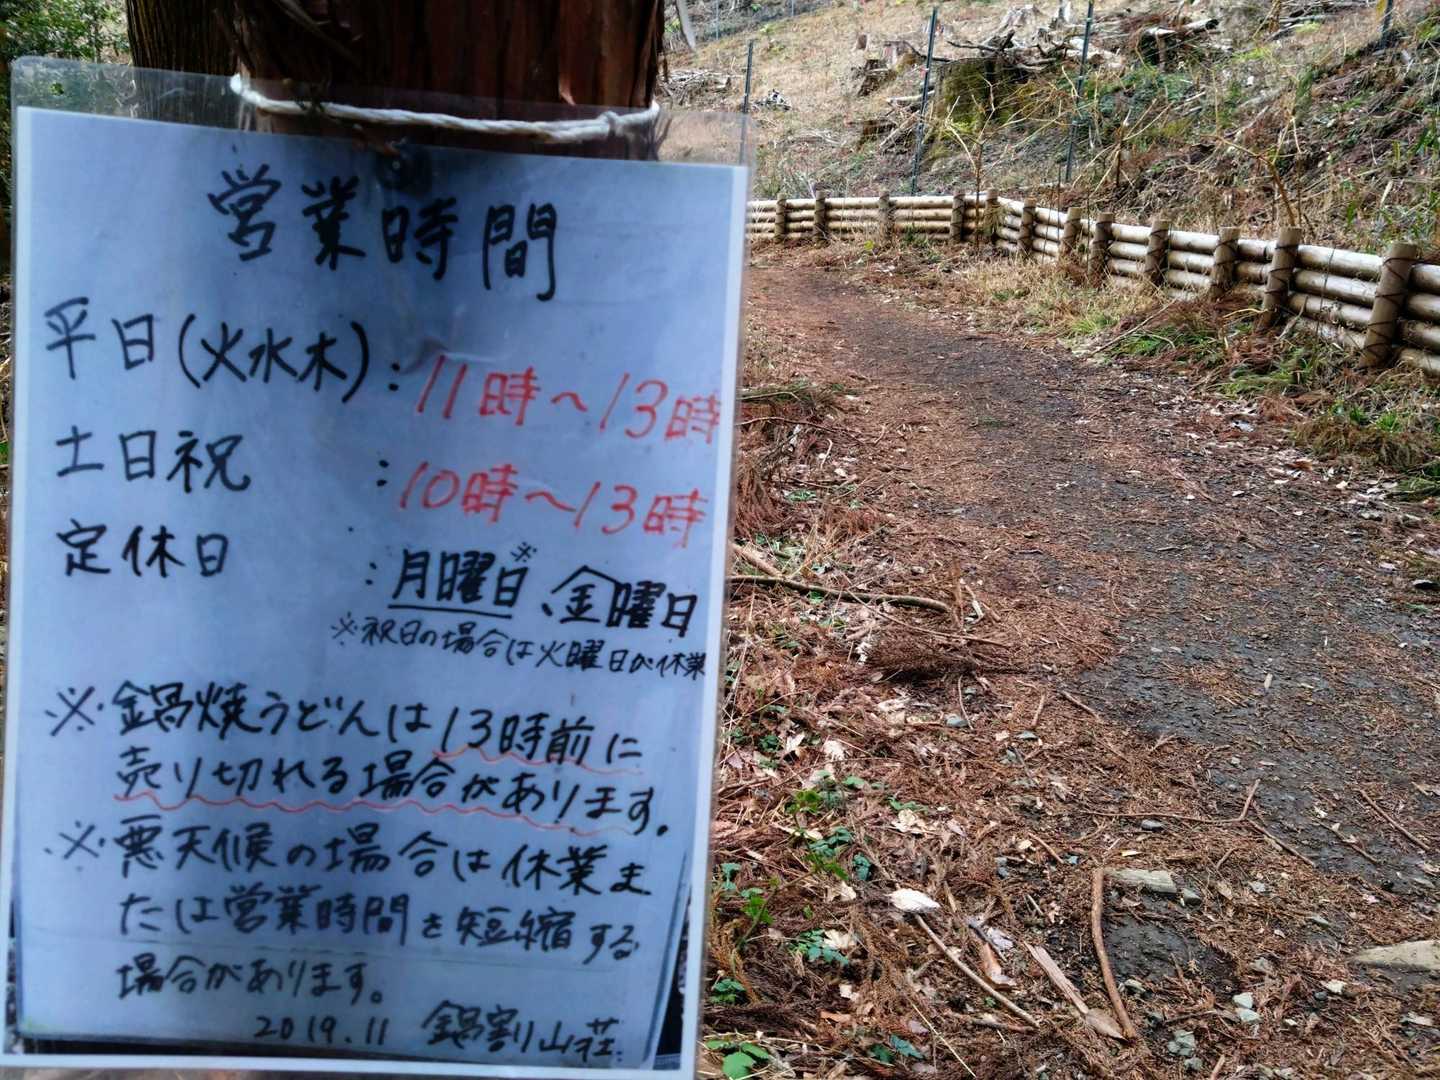 営業時間
平日(火水木):11時～13時
土日祝 :10時～13時
定休日 :月曜日※、金曜日
※祝日の場合は火曜日が休業
※鍋焼うどんは13時前に
売り切れる場合があります。
※悪天候の場合は休業ま
たは営業時間を短縮する
場合があります。
2019.11 鍋割山荘